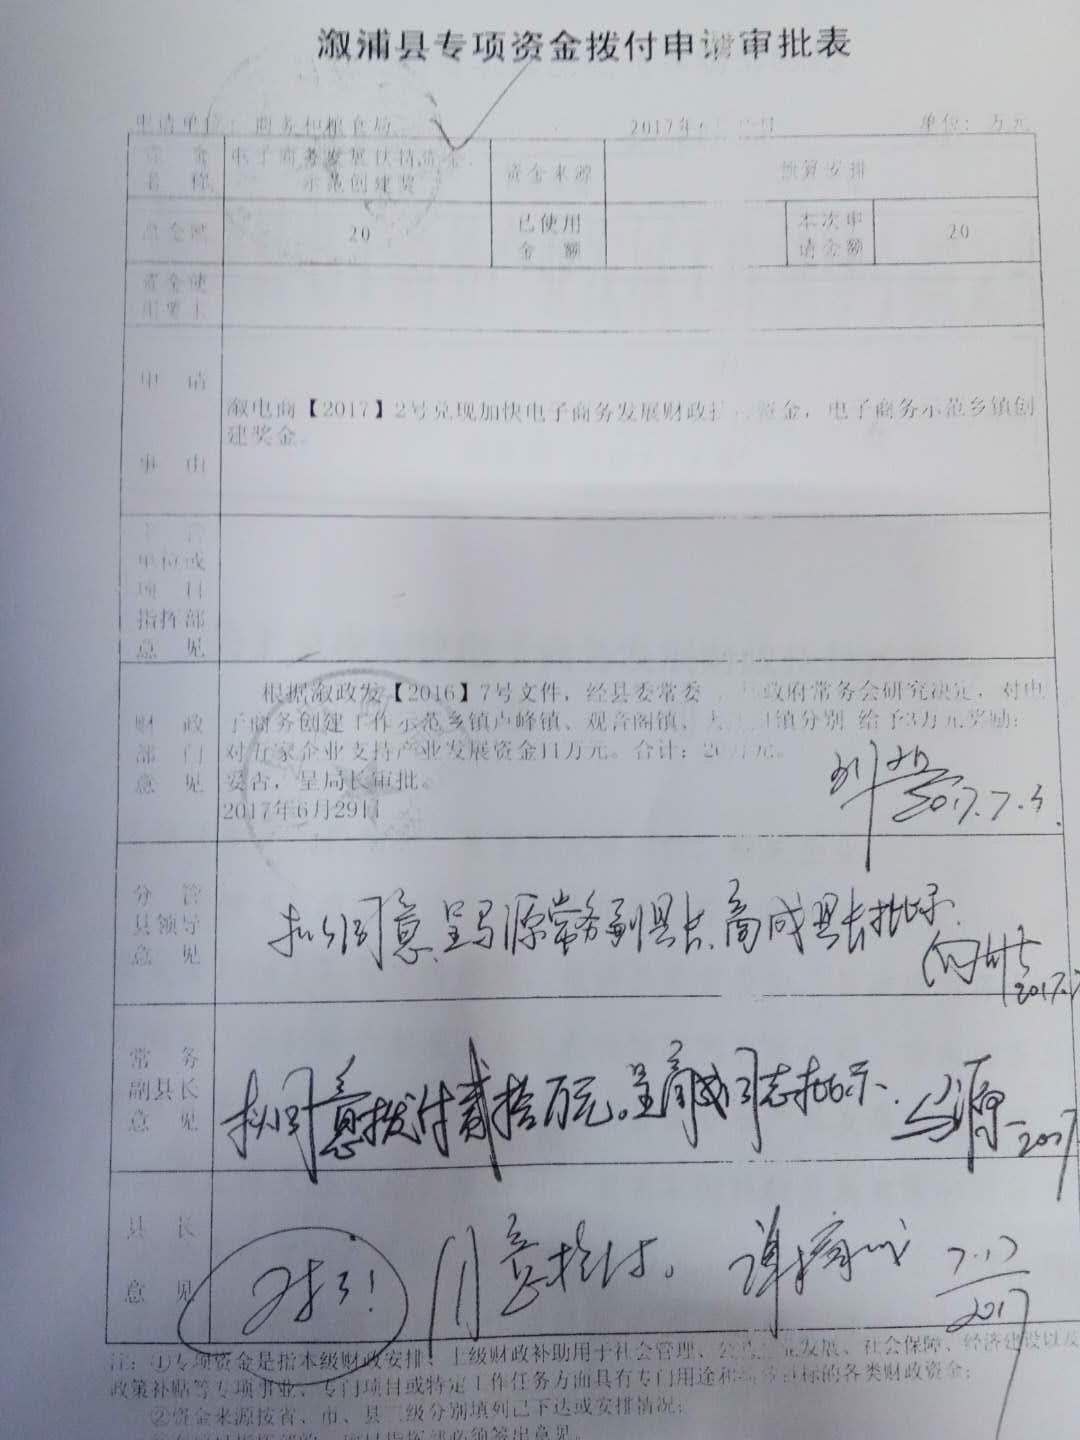 溆浦县专项资金拨付申请审批表
申请单位：商务和粮食局 2017年6 单位：万元
资金 电子商务发展扶持资金、 资金来源 预算安排
名称 示范创建奖
总金额 20 已使用 本次申 20
金额 请金额
资金使
用
申请
溆电商【2017】2号兑现加快电子商务发展财政扶 资金，电子商务示范乡镇创
建奖金。
事由
单位或
项目
指挥部
意见
根据溆政发【2016】7号文件，经县委常委 政府常务会研究决定，对电
财政 子商务创建工作示范乡镇卢峰镇、观音阁镇、 镇分别 给予3万元奖励；
部门 对五家企业支持产业发展资金11万元。合计：20万元。
意见 妥否，呈局长审批。
2017年6月29日
2017.7.3.
分管
县领导 拟同意，呈马源常务副县长、高成县长批示.
意见 2017.7
常务
副县长 拟同意拨付贰拾万元。呈高成同志批示. 马源
意见 2017
县长 同意拨付。 谭高成 7.17
意见 2017
注：①专项资金是指本级财政安排、上级财政补助用于社会管理、公共 业发展、社会保障、经济建设以及
政策补贴等专项事业、专门项目或特定工作任务方面具有专门用途和 目标的各类财政资金；
②资金来源按省、市、县三级分别填列已下达或安排情况；
项目指挥部必须签出意见。